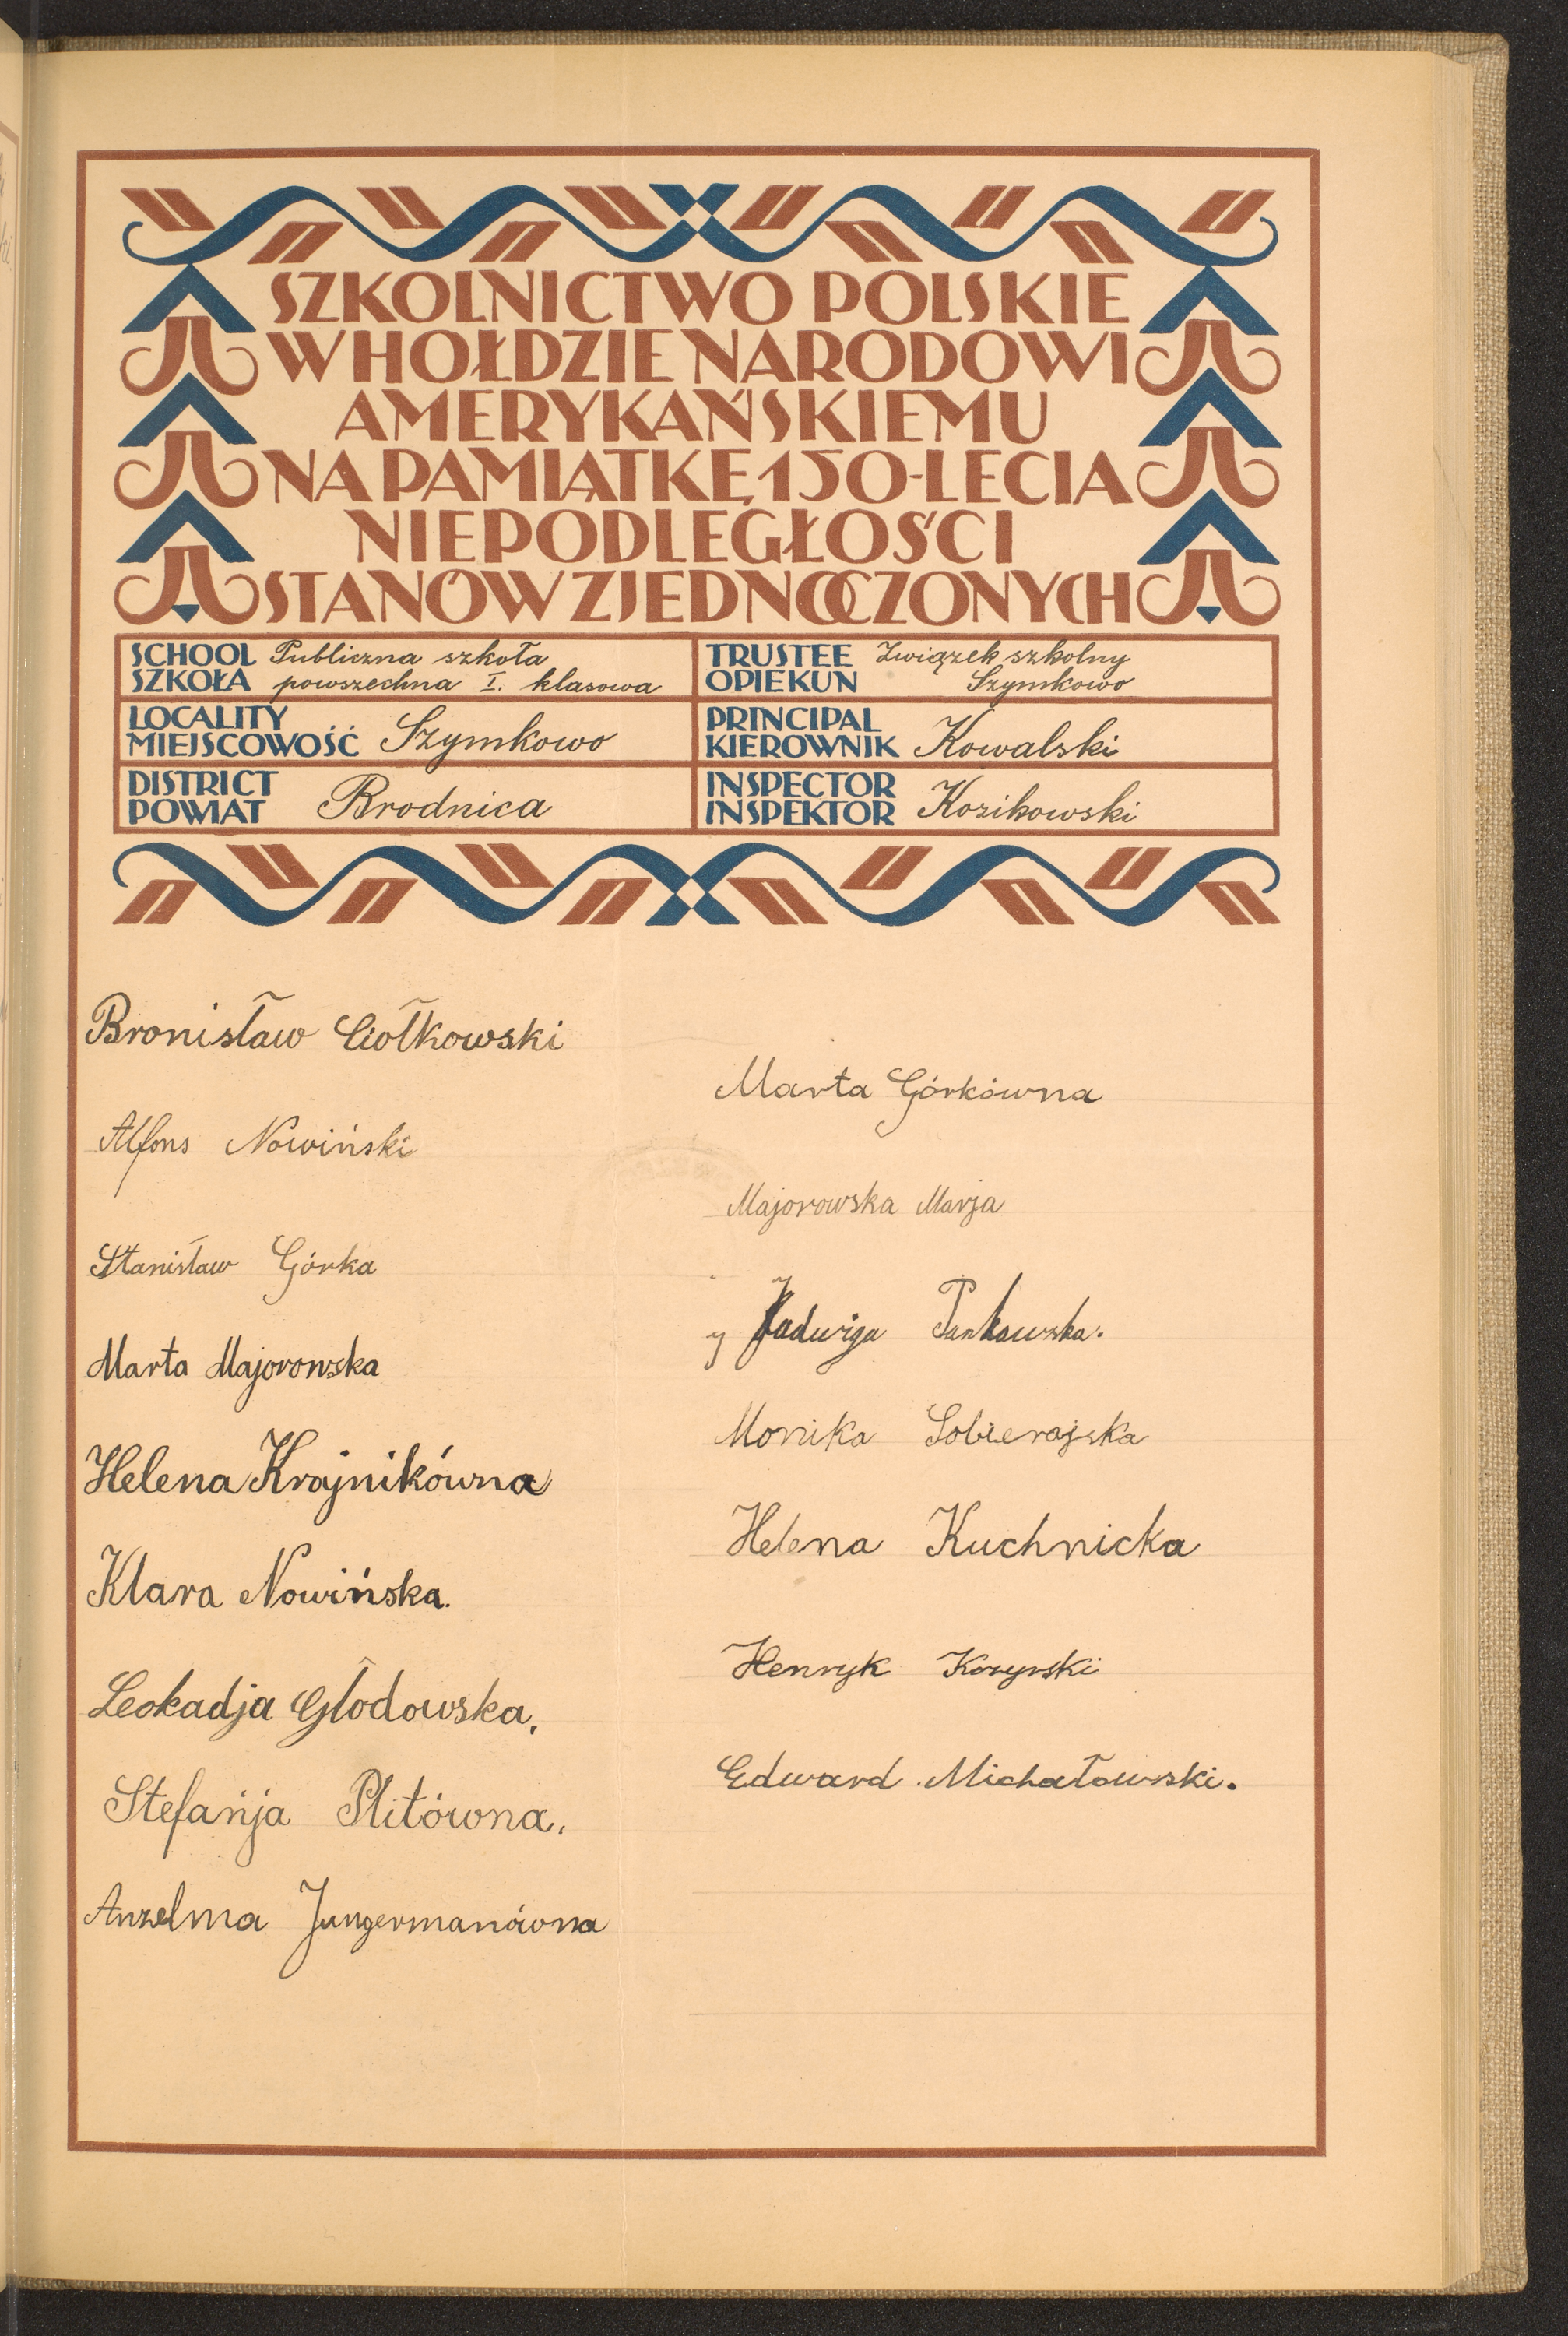 SZKOLNICTWO POLSKIE
W HOŁDZIE NARODOWI
AMERYKAŃSKIEMU
NA PAMIĄTKĘ 150-LECIA
NIEPODLEGŁOŚCI
STANÓW ZJEDNOCZONYCH
SCHOOL Publiczna szkoła
SZKOŁA powszechna I. klasowa
TRUSTEE Związek szkolny
OPIEKUN Szymkowo
LOCALITY
MIEJSCOWOŚĆ Szymkowo
PRINCIPAL
KIEROWNIK Kowalski
DISTRICT
POWIAT Brodnica
INSPECTOR
INSPEKTOR Kozikowski
Bronisław Ciołkowski
Alfons Nowiński
Stanisław Górka
Marta Majorowska
Helena Krajnikówna
Klara Nowińska.
Leokadja Głodowska.
Stefańja Plitówna.
Anzelma Jungermanówna
Marta Górkówna
Majorowska Marja
Jadwiga Pankowska.
Monika Sobierajska
Helena Kuchnicka
Henryk Kozyrski
Edward Michałowski.